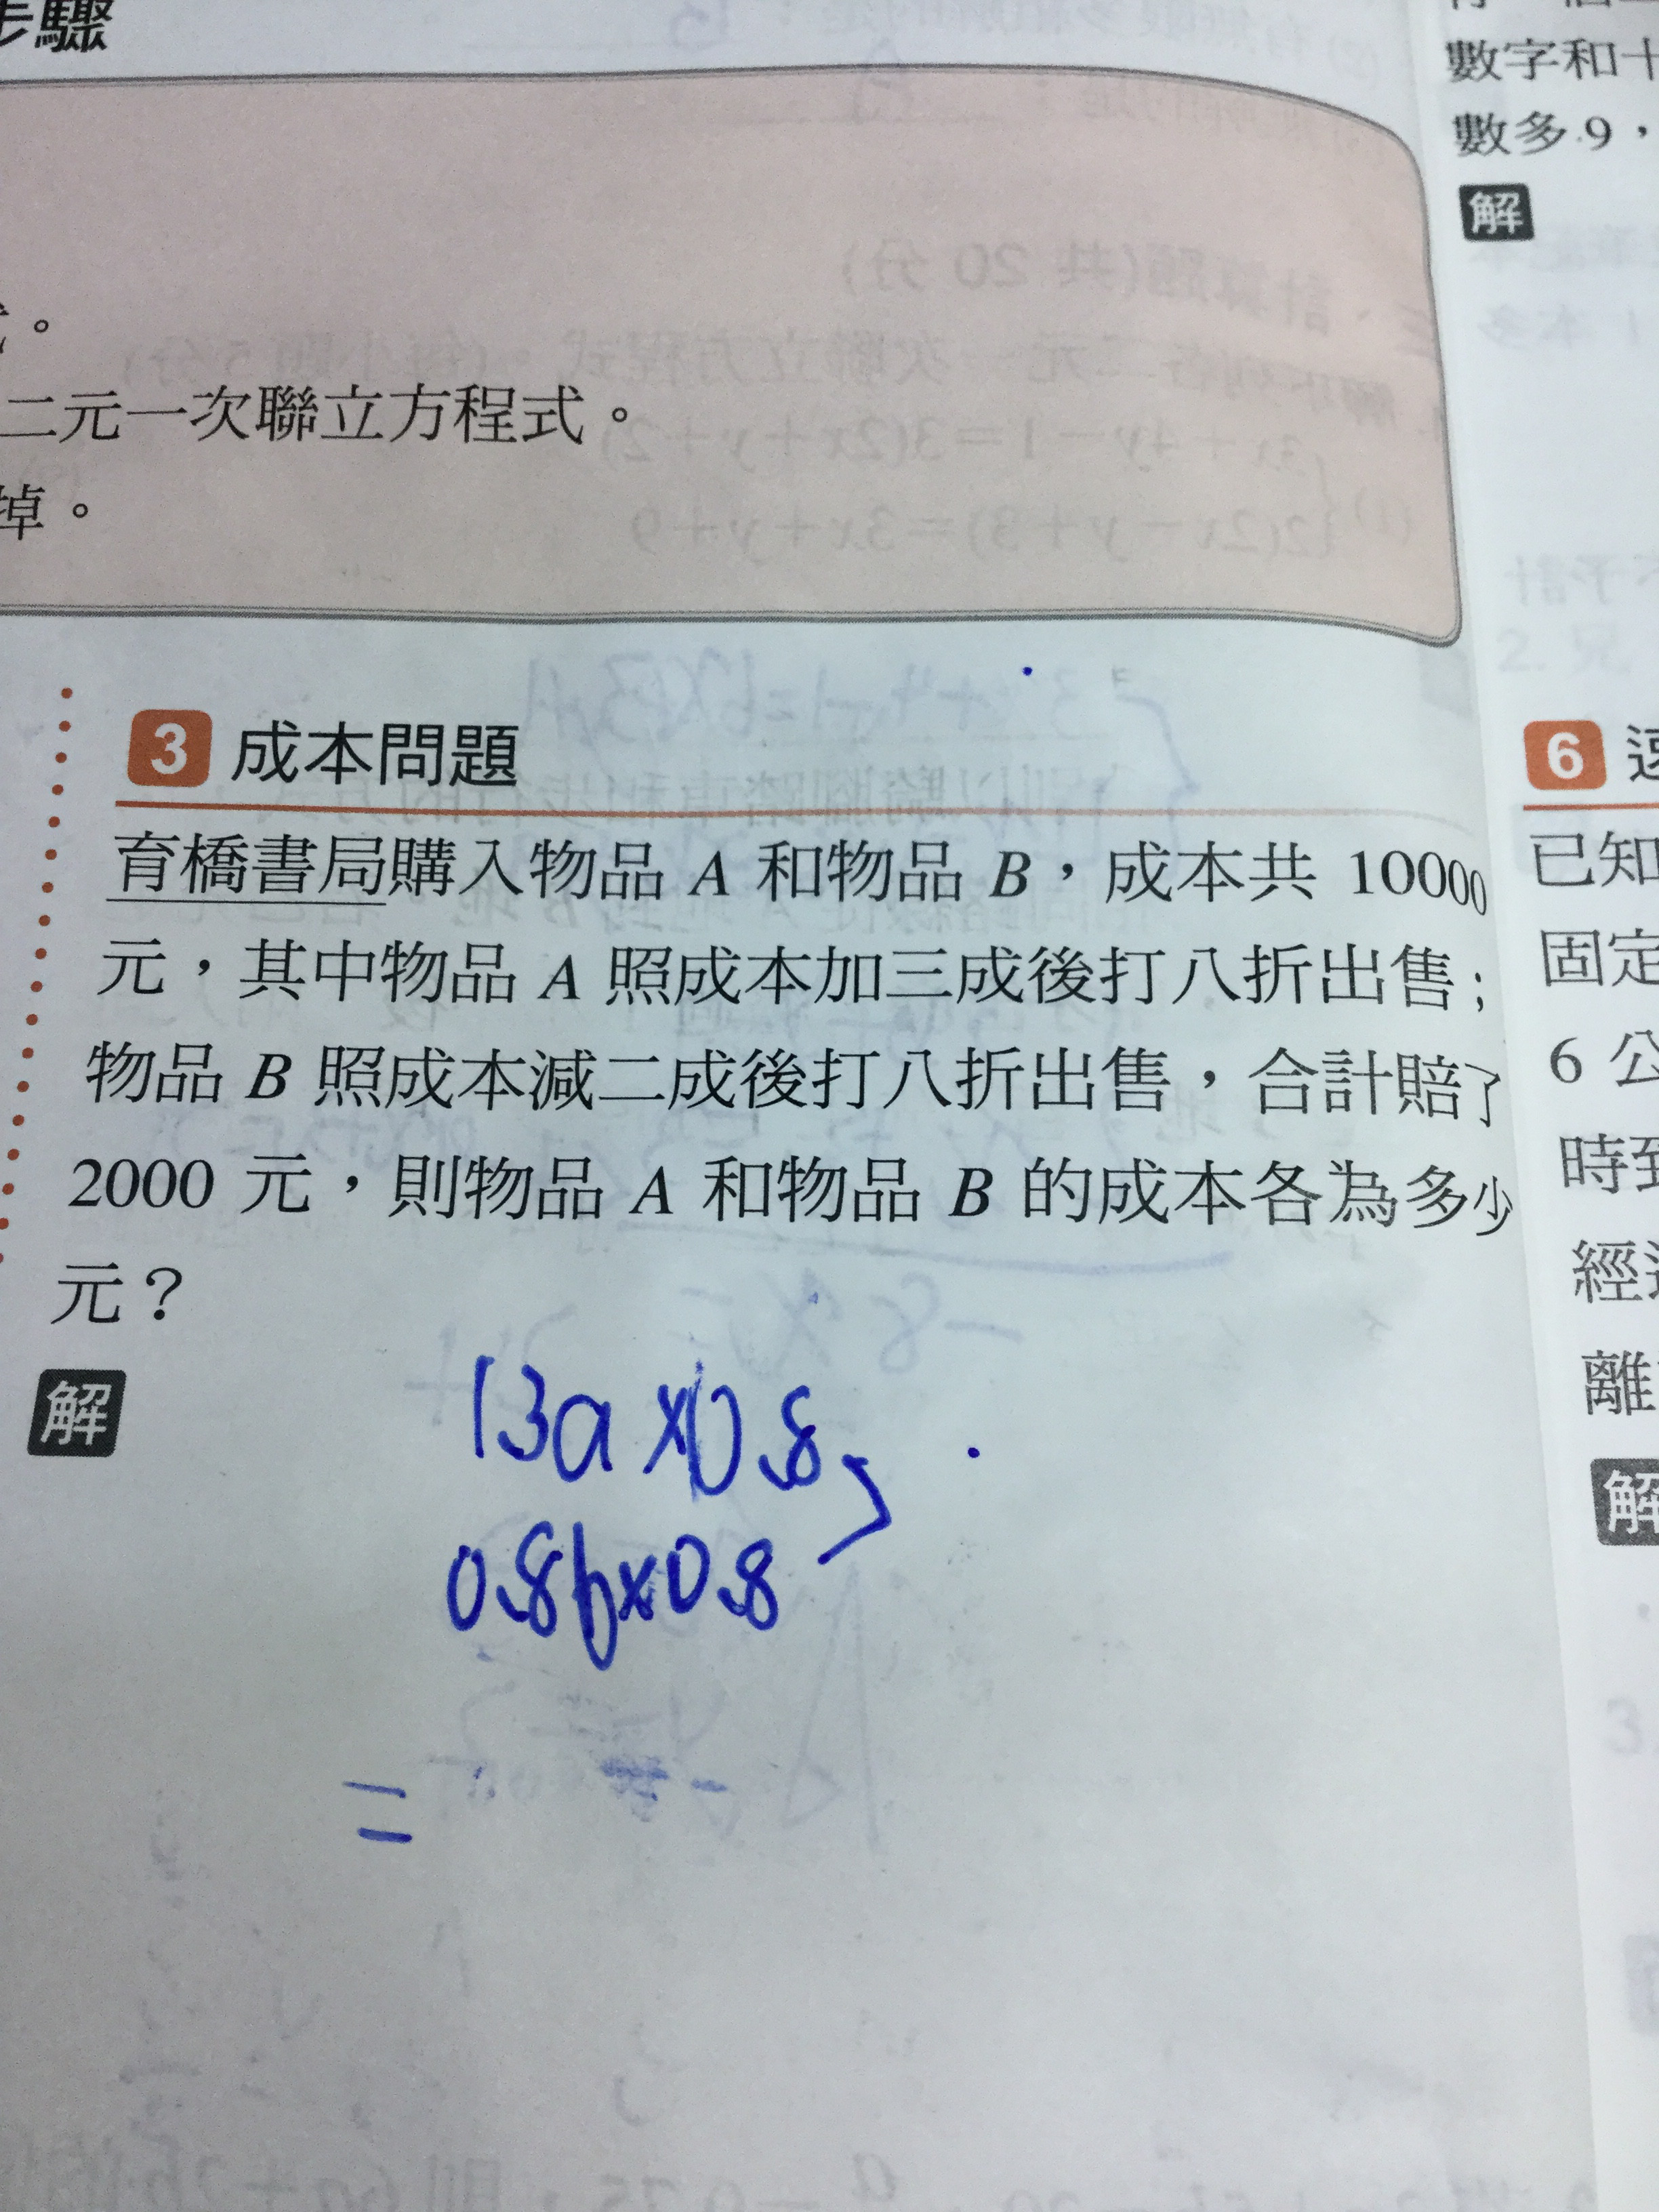 步驟
。
二元一次聯立方程式。
掉。
3 成本問題
育橋書局購入物品 A 和物品 B，成本共 10000
元，其中物品 A 照成本加三成後打八折出售；
物品 B 照成本減二成後打八折出售，合計賠了
2000 元，則物品 A 和物品 B 的成本各為多少
元？
解
1.3a×0.8
0.8b×0.8
=
數字和十
數多 9，
解
6 速
已知
固定
6 公
時到
經過
離
解